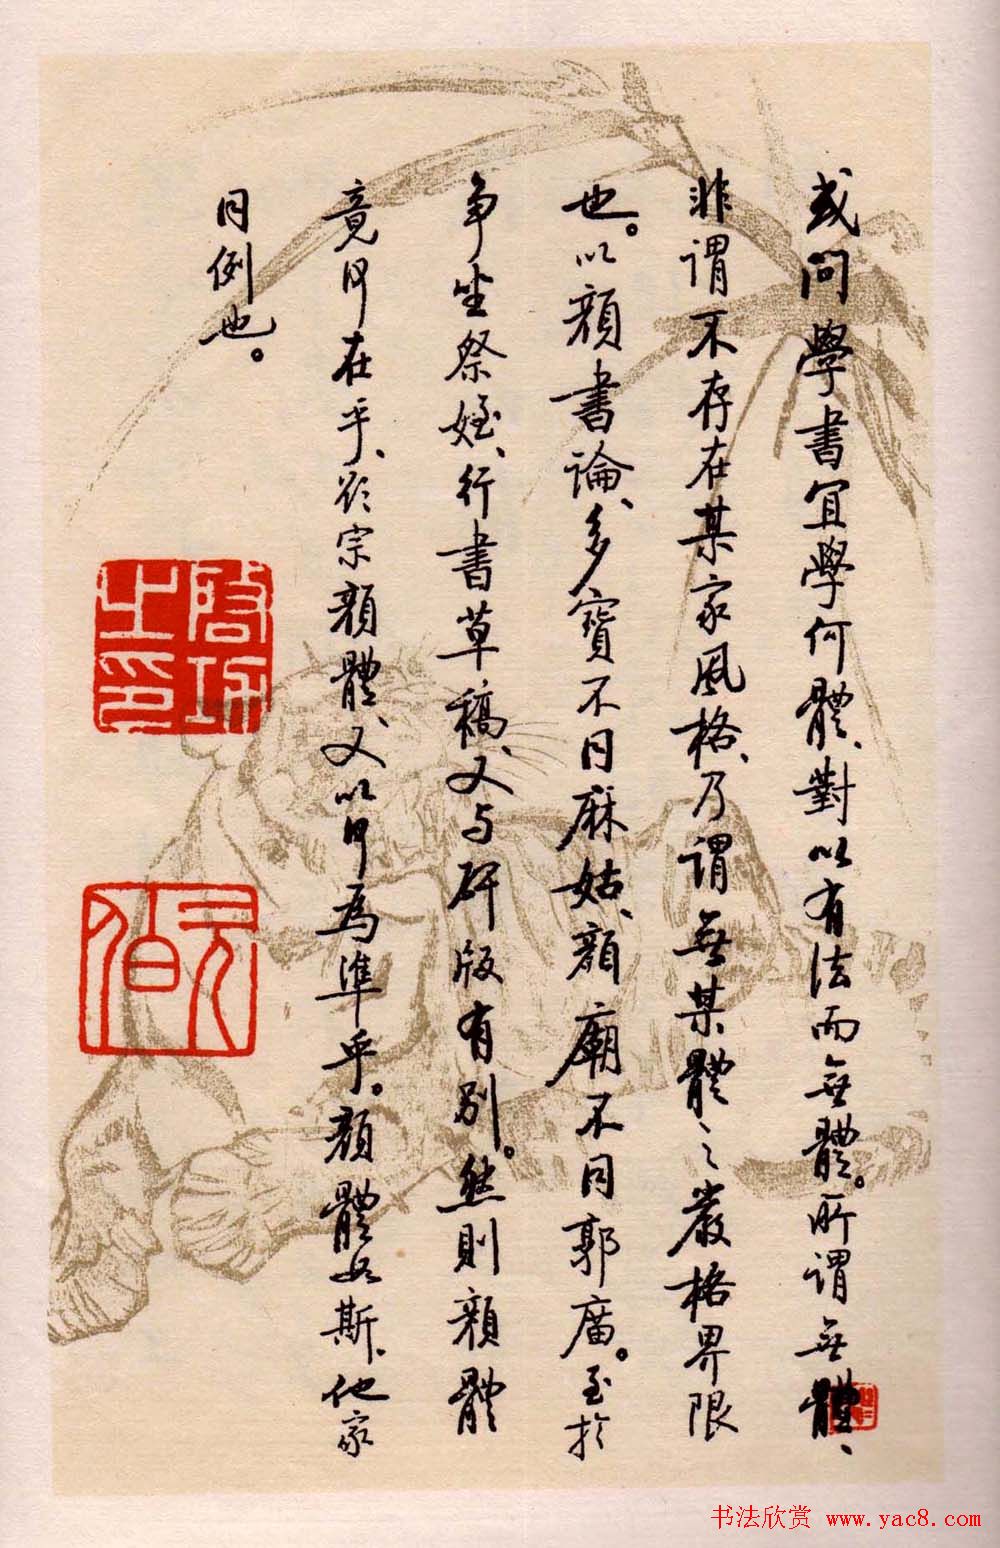 或問學書宜學何體、對以有法而無體。所謂無體、
非謂不存在某家風格、乃謂無某體之嚴格界限
也。以顏書論、多寶不同麻姑、顏廟不同郭廟。至於
爭坐祭姪、行書草稿、又與碑版有別。然則顏體
竟何在乎、欲宗顏體、又以何為準乎。顏體如斯、他家
同例也。
啟功
之印
元伯
书法欣赏 www.yac8.com